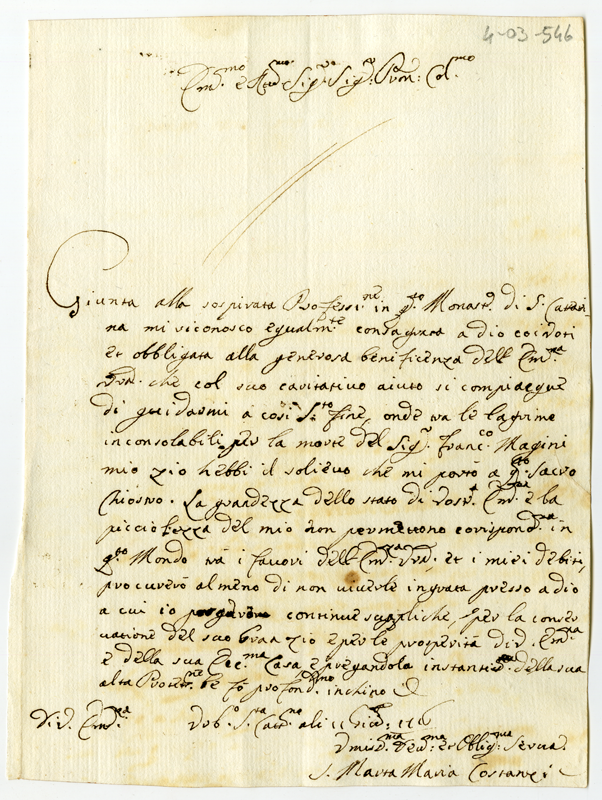 4-03-546
Em.mo e Re.mo Sig.re Sig.re Pron: Col.mo
Giunta alla sospirata Professi.ne in q.to Monast.o di S. Catari-
na mi riconosco egualm.te consagrata a dio coi voti
et obbligata alla generosa beneficenza dell' Em.za
Vra. che col suo caritativo aiuto si compiacque
di guidarmi a così S.to fine, onde tra le lagrime
inconsolabili per la morte del Sig.r Franc.co Magini
mio zio hebbi il solievo che mi portò a q.to sacro
Chiostro. La grandezza dello stato di Vostr.a Em.za e la
picciolezza del mio non permettono corrispond.za in
q.to Mondo trà i favori dell' Em.za Vra. et i miei debiti,
procurerò almeno di non viverle ingrata presso a dio
a cui io porgerò continue suppliche, per la conser
vatione del suo Gran Zio e per le prosperità di V. Em.za
e della sua Ecc.ma Casa e pregandola instantem.te della sua
alta Protet.ne le fo profond.mo inchino
Di V. Em.za
S. Catt.na
Vmiliss.ma Dev.ma et Oblig.ma Serva
S. Marta Maria Costanzi